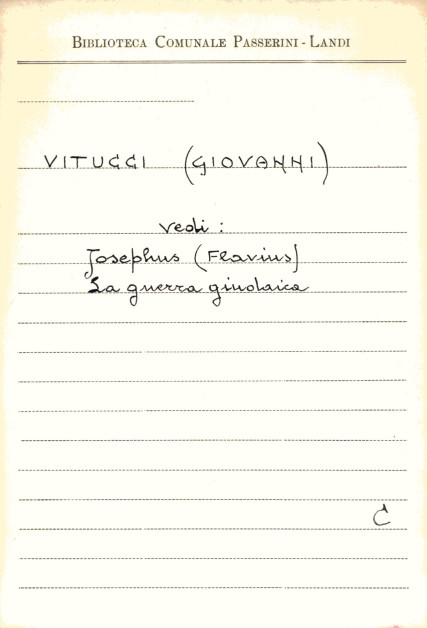 BIBLIOTECA COMUNALE PASSERINI - LANDI
VITUCCI (GIOVANNI)
vedi :
Josephus (Flavius)
La guerra giudaica
C